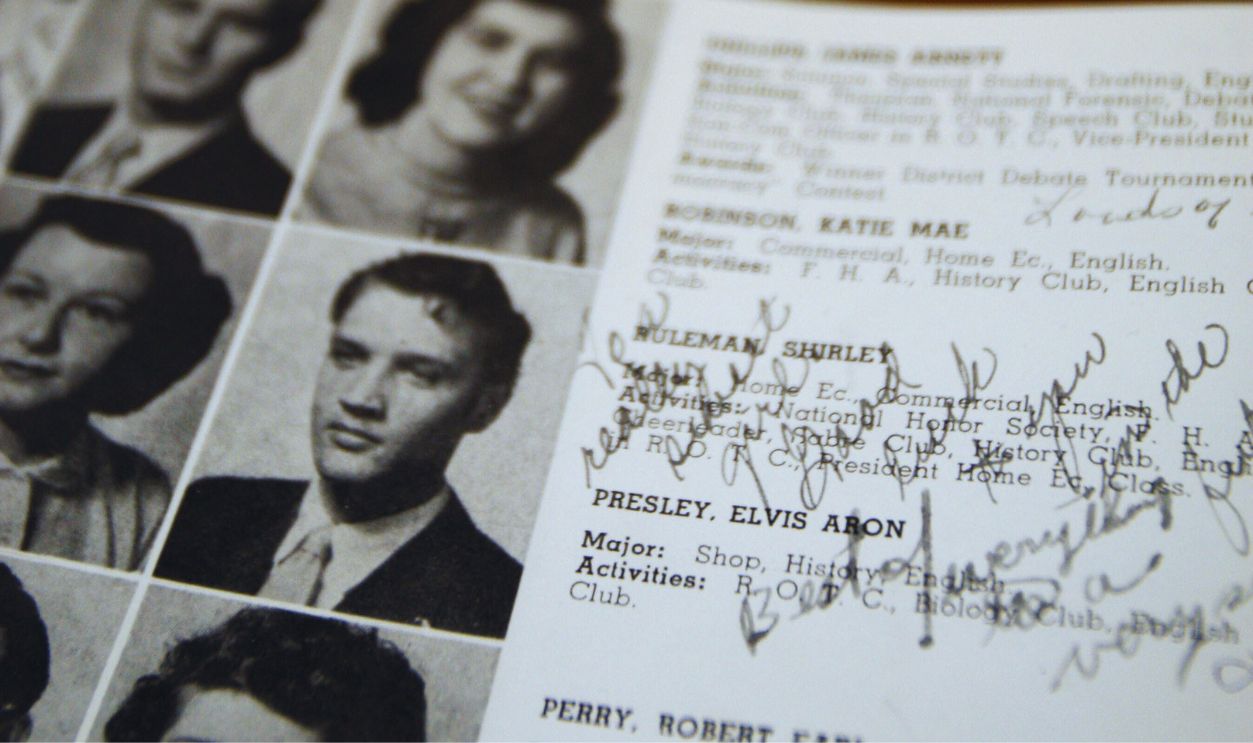 PHILLIPS, JAMES ARNETT
Major: Science, Special Studies, Drafting, Eng
Activities: National Forensic, Deba
Biology Club, History Club, Speech Club, Stu
Non-Com Officer in R. O. T. C., Vice-President
History Club.
Awards: Winner District Debate Tournament
Contest
Loads of
ROBINSON, KATIE MAE
Major: Commercial, Home Ec., English.
Activities: F. H. A., History Club, English C
Club.
RULEMAN, SHIRLEY
Major: Home Ec., Commercial, English.
Activities: National Honor Society, F. H. A
Cheerleader, Sabre Club, History Club, Eng
in R. O. T. C., President Home Ec. Class.
PRESLEY, ELVIS ARON
Major: Shop, History, English.
Activities: R. O. T. C., Biology Club, English
Club.
Best of everything
to a
PERRY, ROBERT EARL